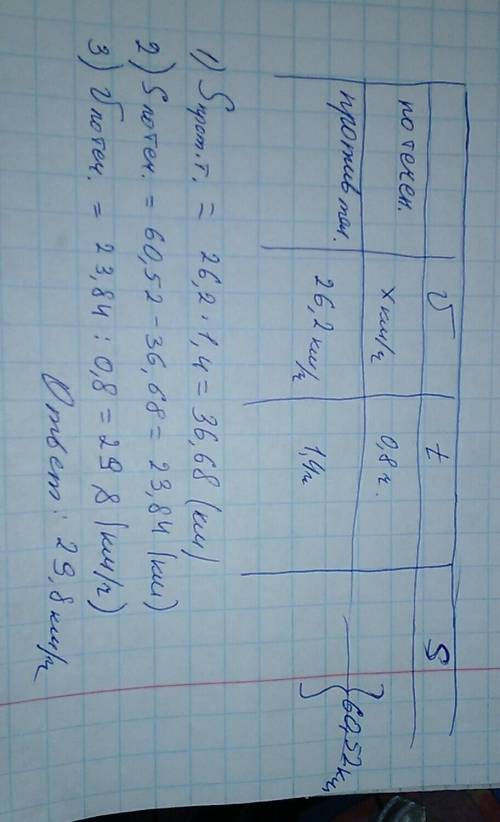 V t S
по течен. x км/ч 0,8 ч.
против теч. 26,2 км/ч 1,4ч
} 60,52 км
1) Sпрот.т. = 26,2 · 1,4 = 36,68 (км)
2) Sпо теч. = 60,52 - 36,68 = 23,84 (км)
3) Vпо теч. = 23,84 : 0,8 = 29,8 (км/ч)
Ответ: 29,8 км/ч